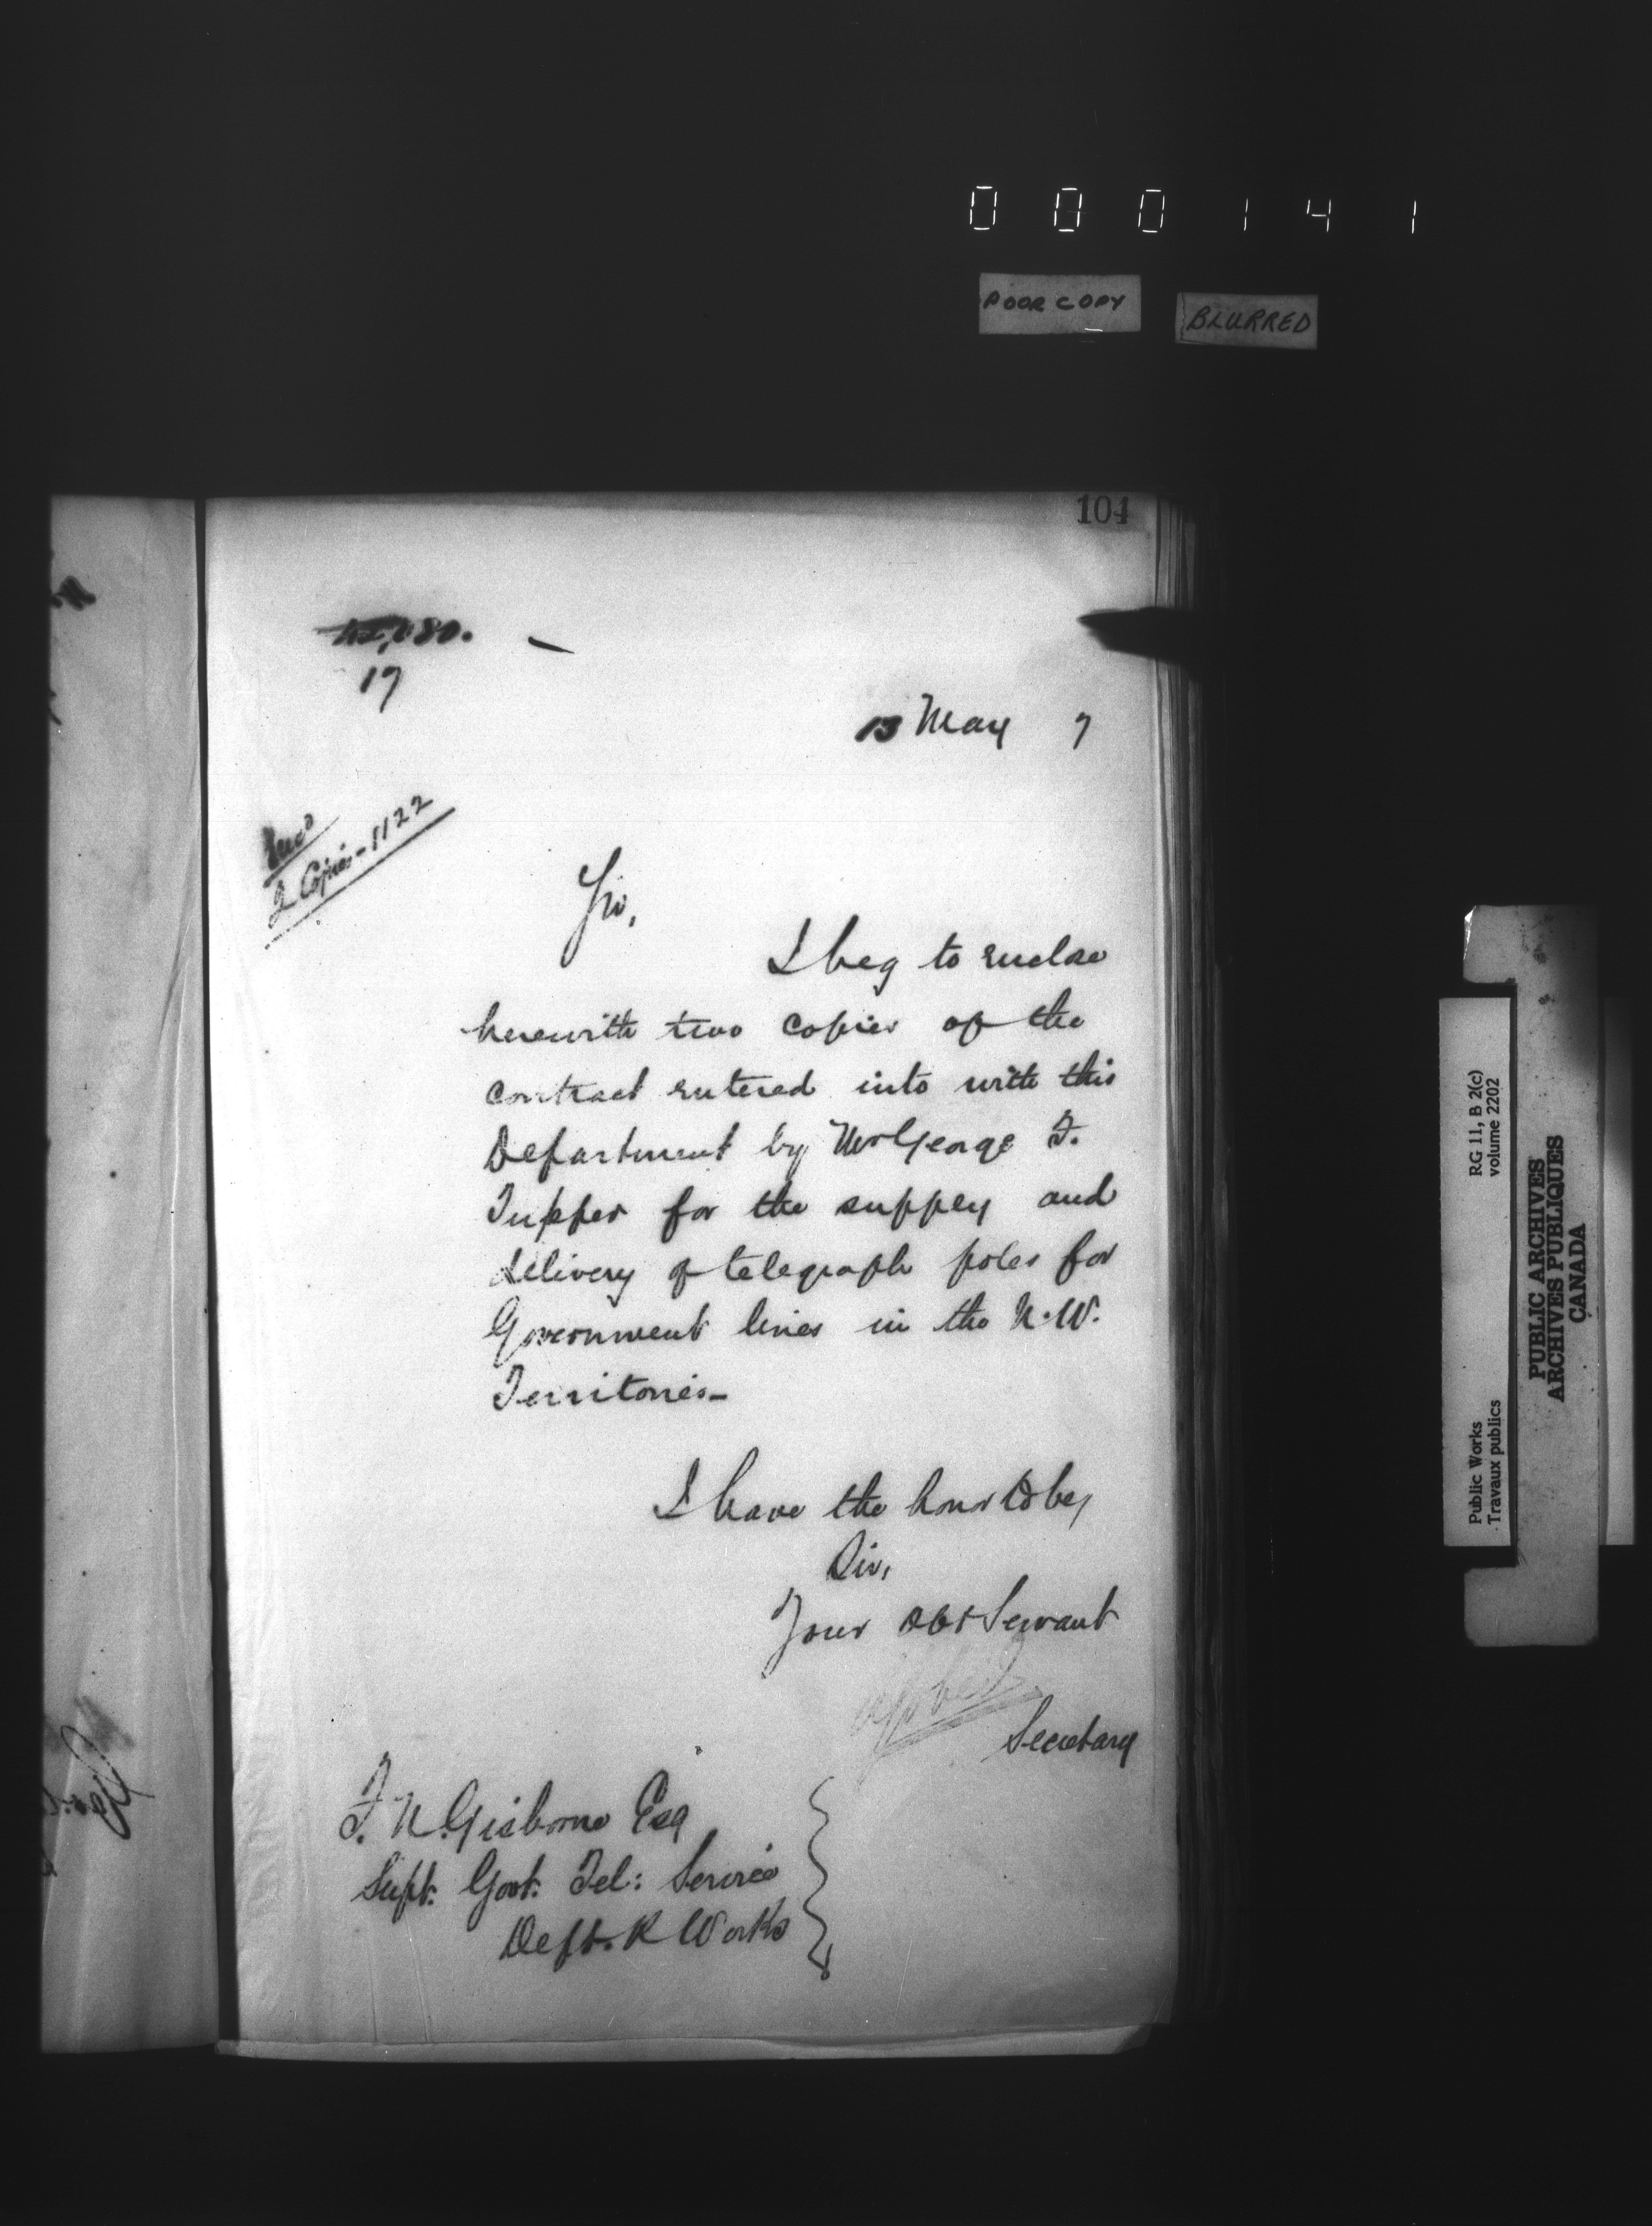 000141
POOR COPY
BLURRED
104
17
13 May 7
2 Copies - 1122
Sir,
I beg to enclose
herewith two copies of the
contract entered into with this
Department by Mr George F.
Tupper for the supply and
delivery of telegraph poles for
Government lines in the N.W.
Territories_
I have the honor to be,
Sir,
Your Obt Servant
Secretary
F. N. Gisborne Esq
Supt. Govt. Tel: Service
Dept. P Works
RG 11, B 2(c)
volume 2202
Public Works
Travaux publics
PUBLIC ARCHIVES
ARCHIVES PUBLIQUES
CANADA